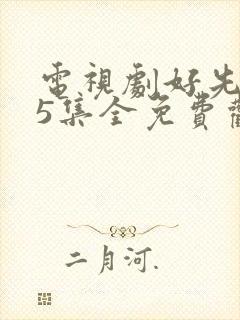 電視劇好先
5集全免費觀
二月河.